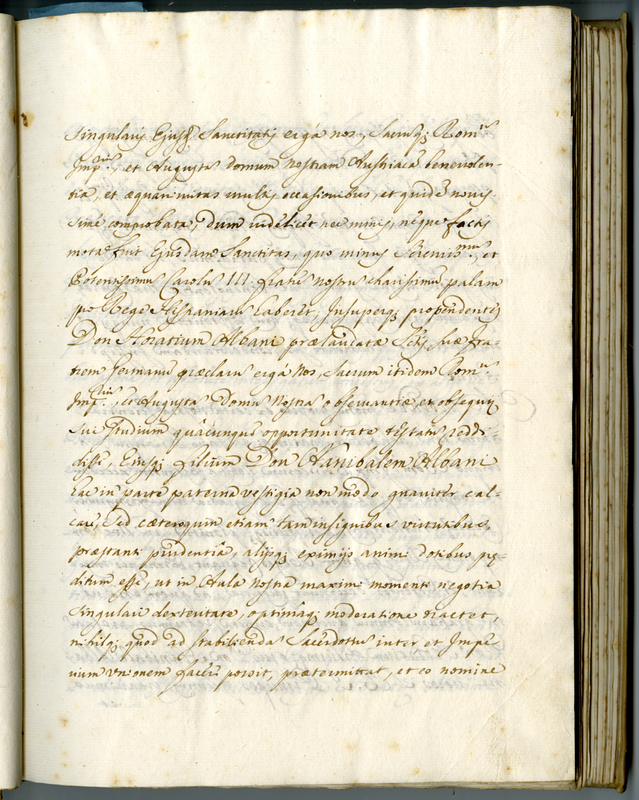 singularis Ejusq; Sanctitatis ergà nos, Sacrumq; Rom.m
Imp.rium, et Augustã domum nostram Austriacã benevolen-
tia, et æquanimitas multis occasionibus, et quidẽ novis-
simè comprobata, dum videlicet nec minis, neque factis
mota fuit Ejusdem Sanctitas, quo minus Sereniss.mum, et
Potentissimũ Carolũ III. fratrẽ nostrũ charissimũ palam
pro Rege Hispaniarũ haberet, Insuperq; propendentes
Don Horatium Albani prælaudatæ Stis suæ fra-
trem germanũ præclara ergà Nos, Sacrum itidem Rom.m
Imp.rium, et Augustã Domũ Nostrã observantiæ, et obsequij
sui studium quâcunque opportunitate testatũ reddi-
disse, Ejusq; filium Don Hanibalem Albani
hac in parte paterna vestigia non modo gnaviter cal-
care, sed cæteroquin etiam tam insignibus virtutibus,
præstanti prudentiâ, alijsq; eximijs animi dotibus præ-
ditum esse, ut in Aula nostra maximi momenti negotia
singulari dexteritate, optimâq; moderatione tractet,
nihilq; quod ad stabiliendã Sacerdotiũ inter et Impe
rium Unionem facere possit, prætermittat, et eo nomine